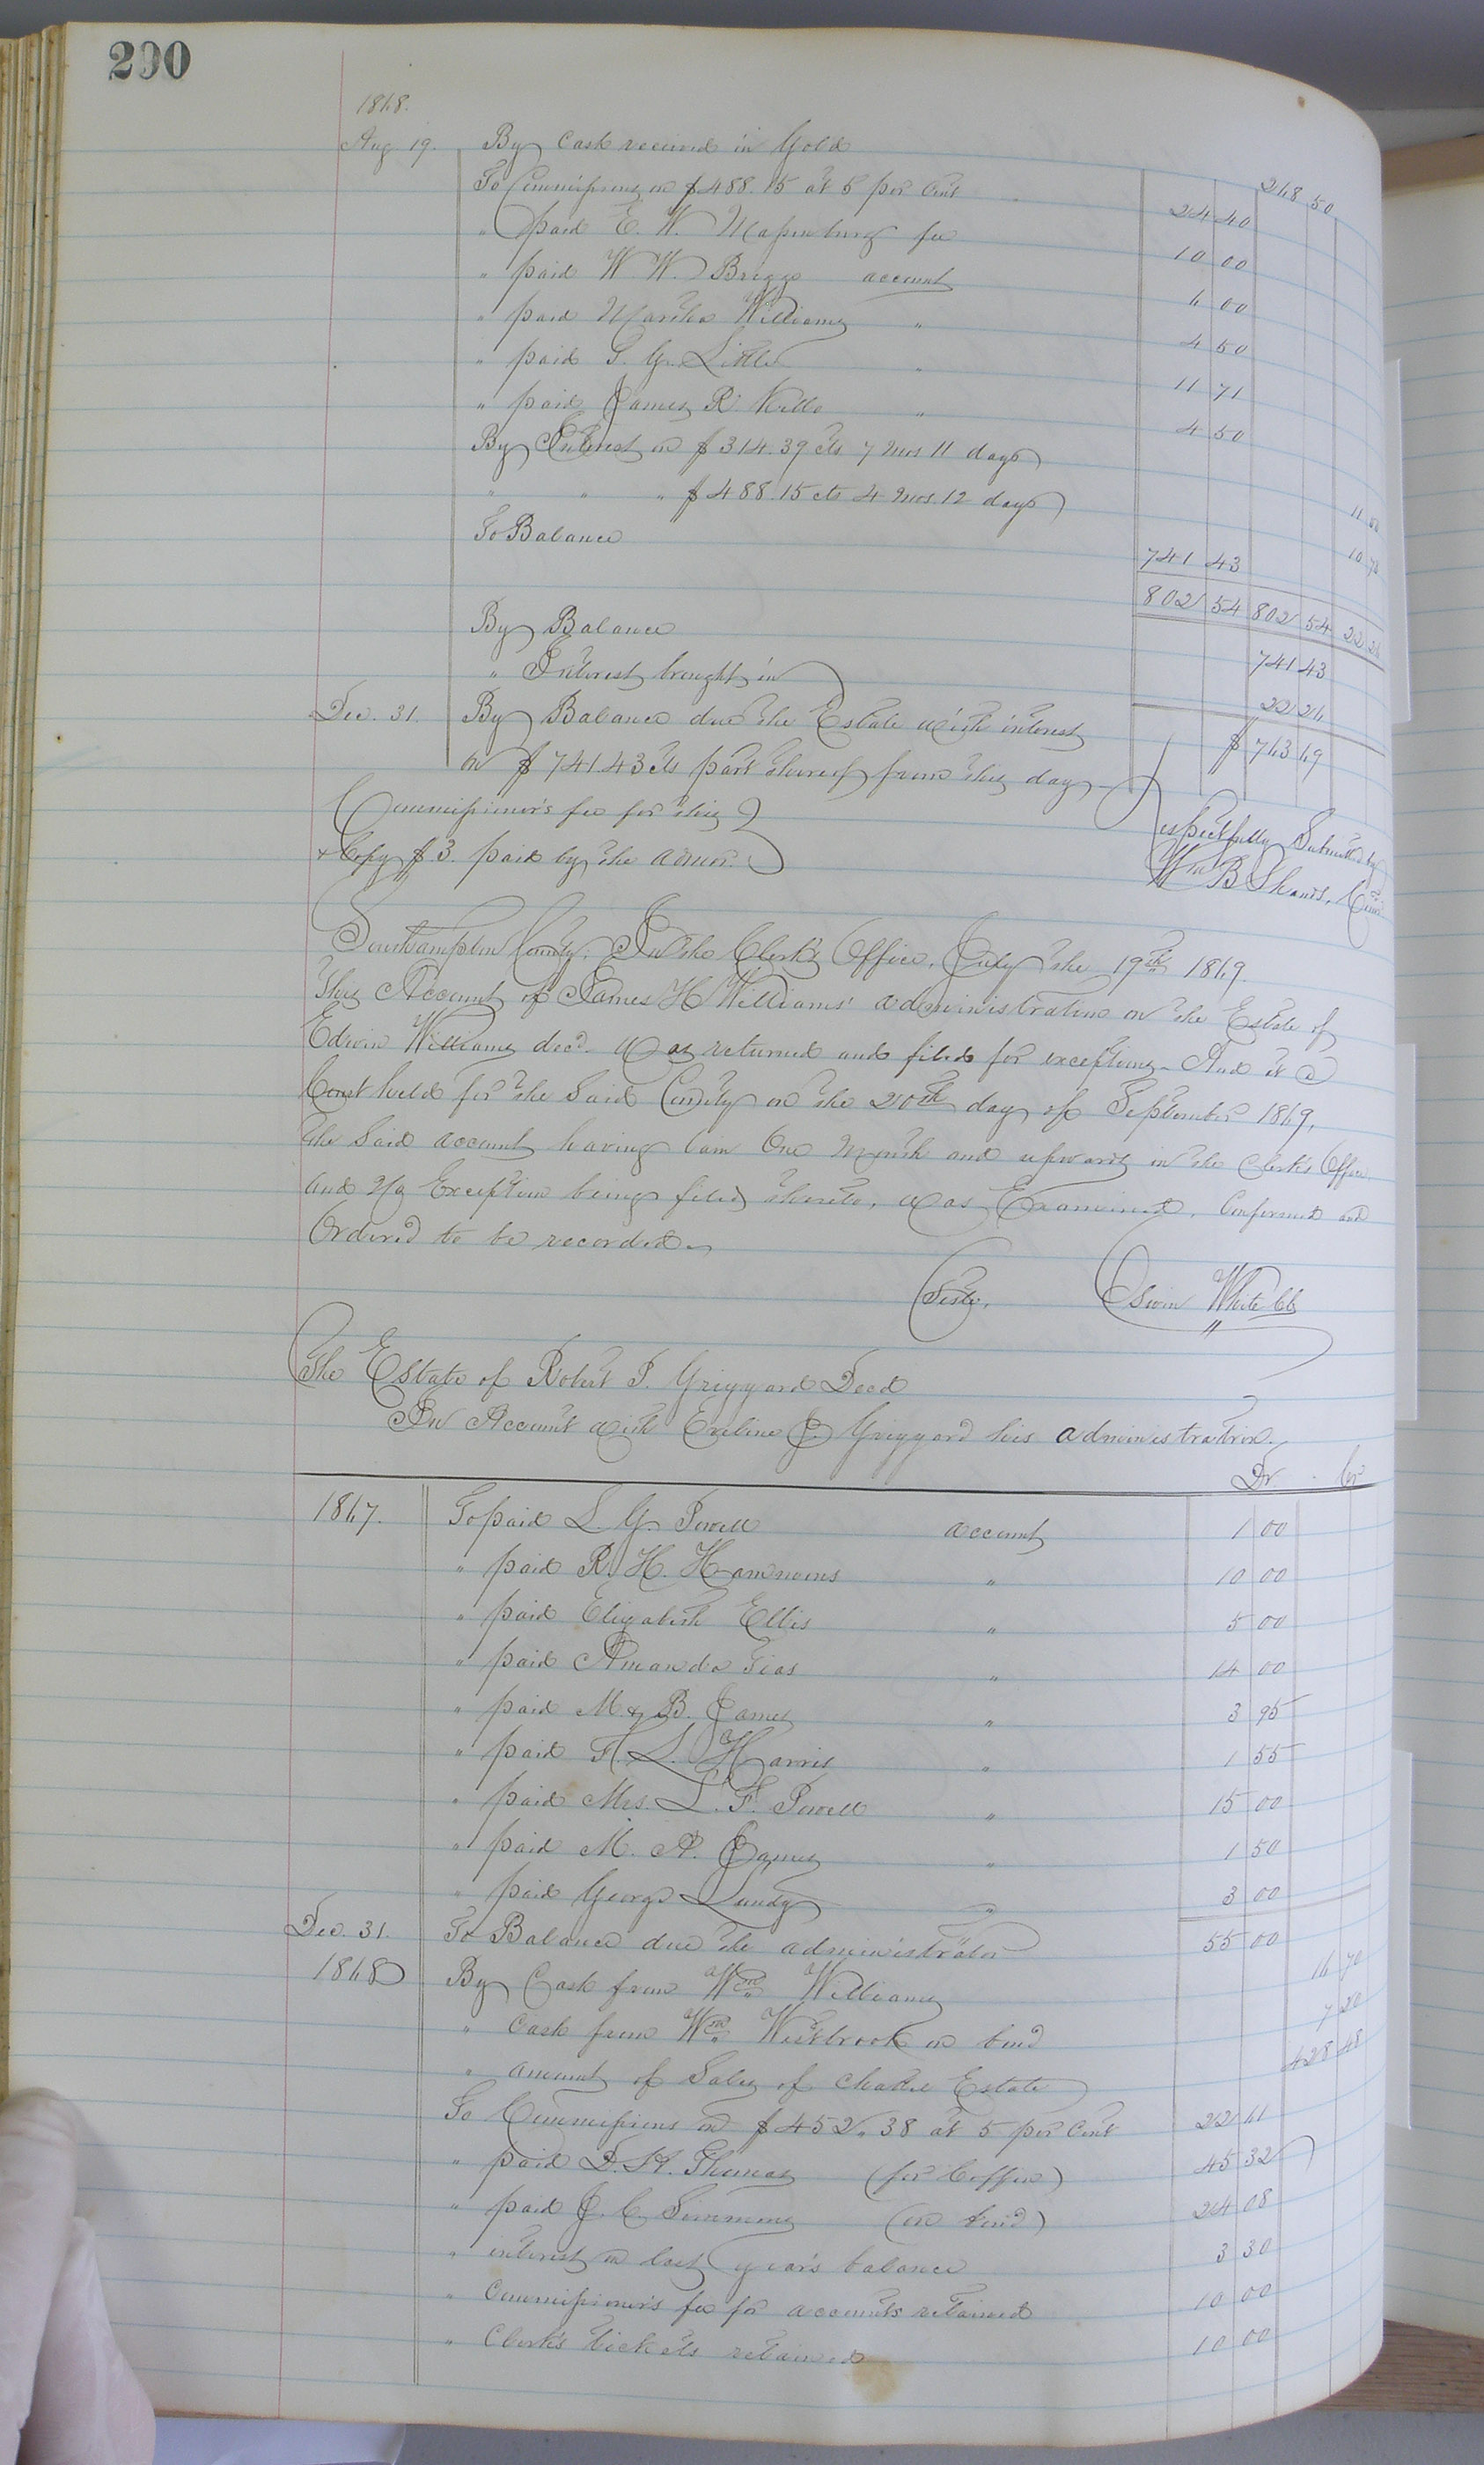 290
1868.
Aug 19. By Cash received in Gold 268 50
To Commissions on $488.15 at 5 per Cent 24 40
" paid E. W. Massenburg fee 10 00
" paid W. W. Briggs account 6 00
" paid Martha Williams " 4 50
" paid S. G. Little " 11 71
" paid James R. Kello " 4 50
By Interest on $314.39 cts 7 Mos 11 days 11
" " " $488.15 cts 4 Mos. 12 days 10 76
To Balance 741 43
802 54 802 54 22 26
By Balance 741 43
" Interest brought in 22 26
Dec. 31. By Balance due the Estate with interest $ 763 69
on $741 43 cts part thereof from this day
Commissioner's fee for this
& Copy $3. paid by the admor.
Respectfully Submitted by
Wm B Shands, Comr
Southampton County. In the Clerk's Office, July the 19th 1869.
This Account of James H Williams' administration on the Estate of
Edwin Williams decd. was returned and filed for exceptions - And at a
Court held for the Said County on the 20th day of September 1869,
The Said account having lain One Month and upwards in the Clerk's Office
And No Exception being filed thereto, was Examined, Confirmed and
Ordered to be recorded.
Teste, Edwin White CC
The Estate of Robert T. Griggard Decd
In Account with Eveline J. Griggard his administratrix.
Dr. Cr
1867. To paid L. G. Powell account 1 00
" paid R. H. Hammons " 10 00
" paid Elizabeth Ellis " 5 00
" paid Amanda Vias " 14 00
" paid M. & B. James " 3 95
" paid F. L. Harris " 1 55
" paid Mrs. L. F. Powell " 15 00
" paid M. A. James " 1 50
" paid George Lundy " 3 00
Dec. 31. To Balance due the administrator 55 00
1868 By Cash from Wm. Williams 16 70
" Cash from Wm. Westbrook on bond 7 20
" amount of Sales of Chattel Estate 428 48
To Commissions on $452.38 at 5 per Cent 22 61
" paid D. H. Thomas (for Coffin) 45 32
" paid J. C. Simmons (on bond) 24 08
" interest on last year's balance 3 30
" Commissioner's fee for accounts retained 10 00
" Clerk's tickets retained 10 00